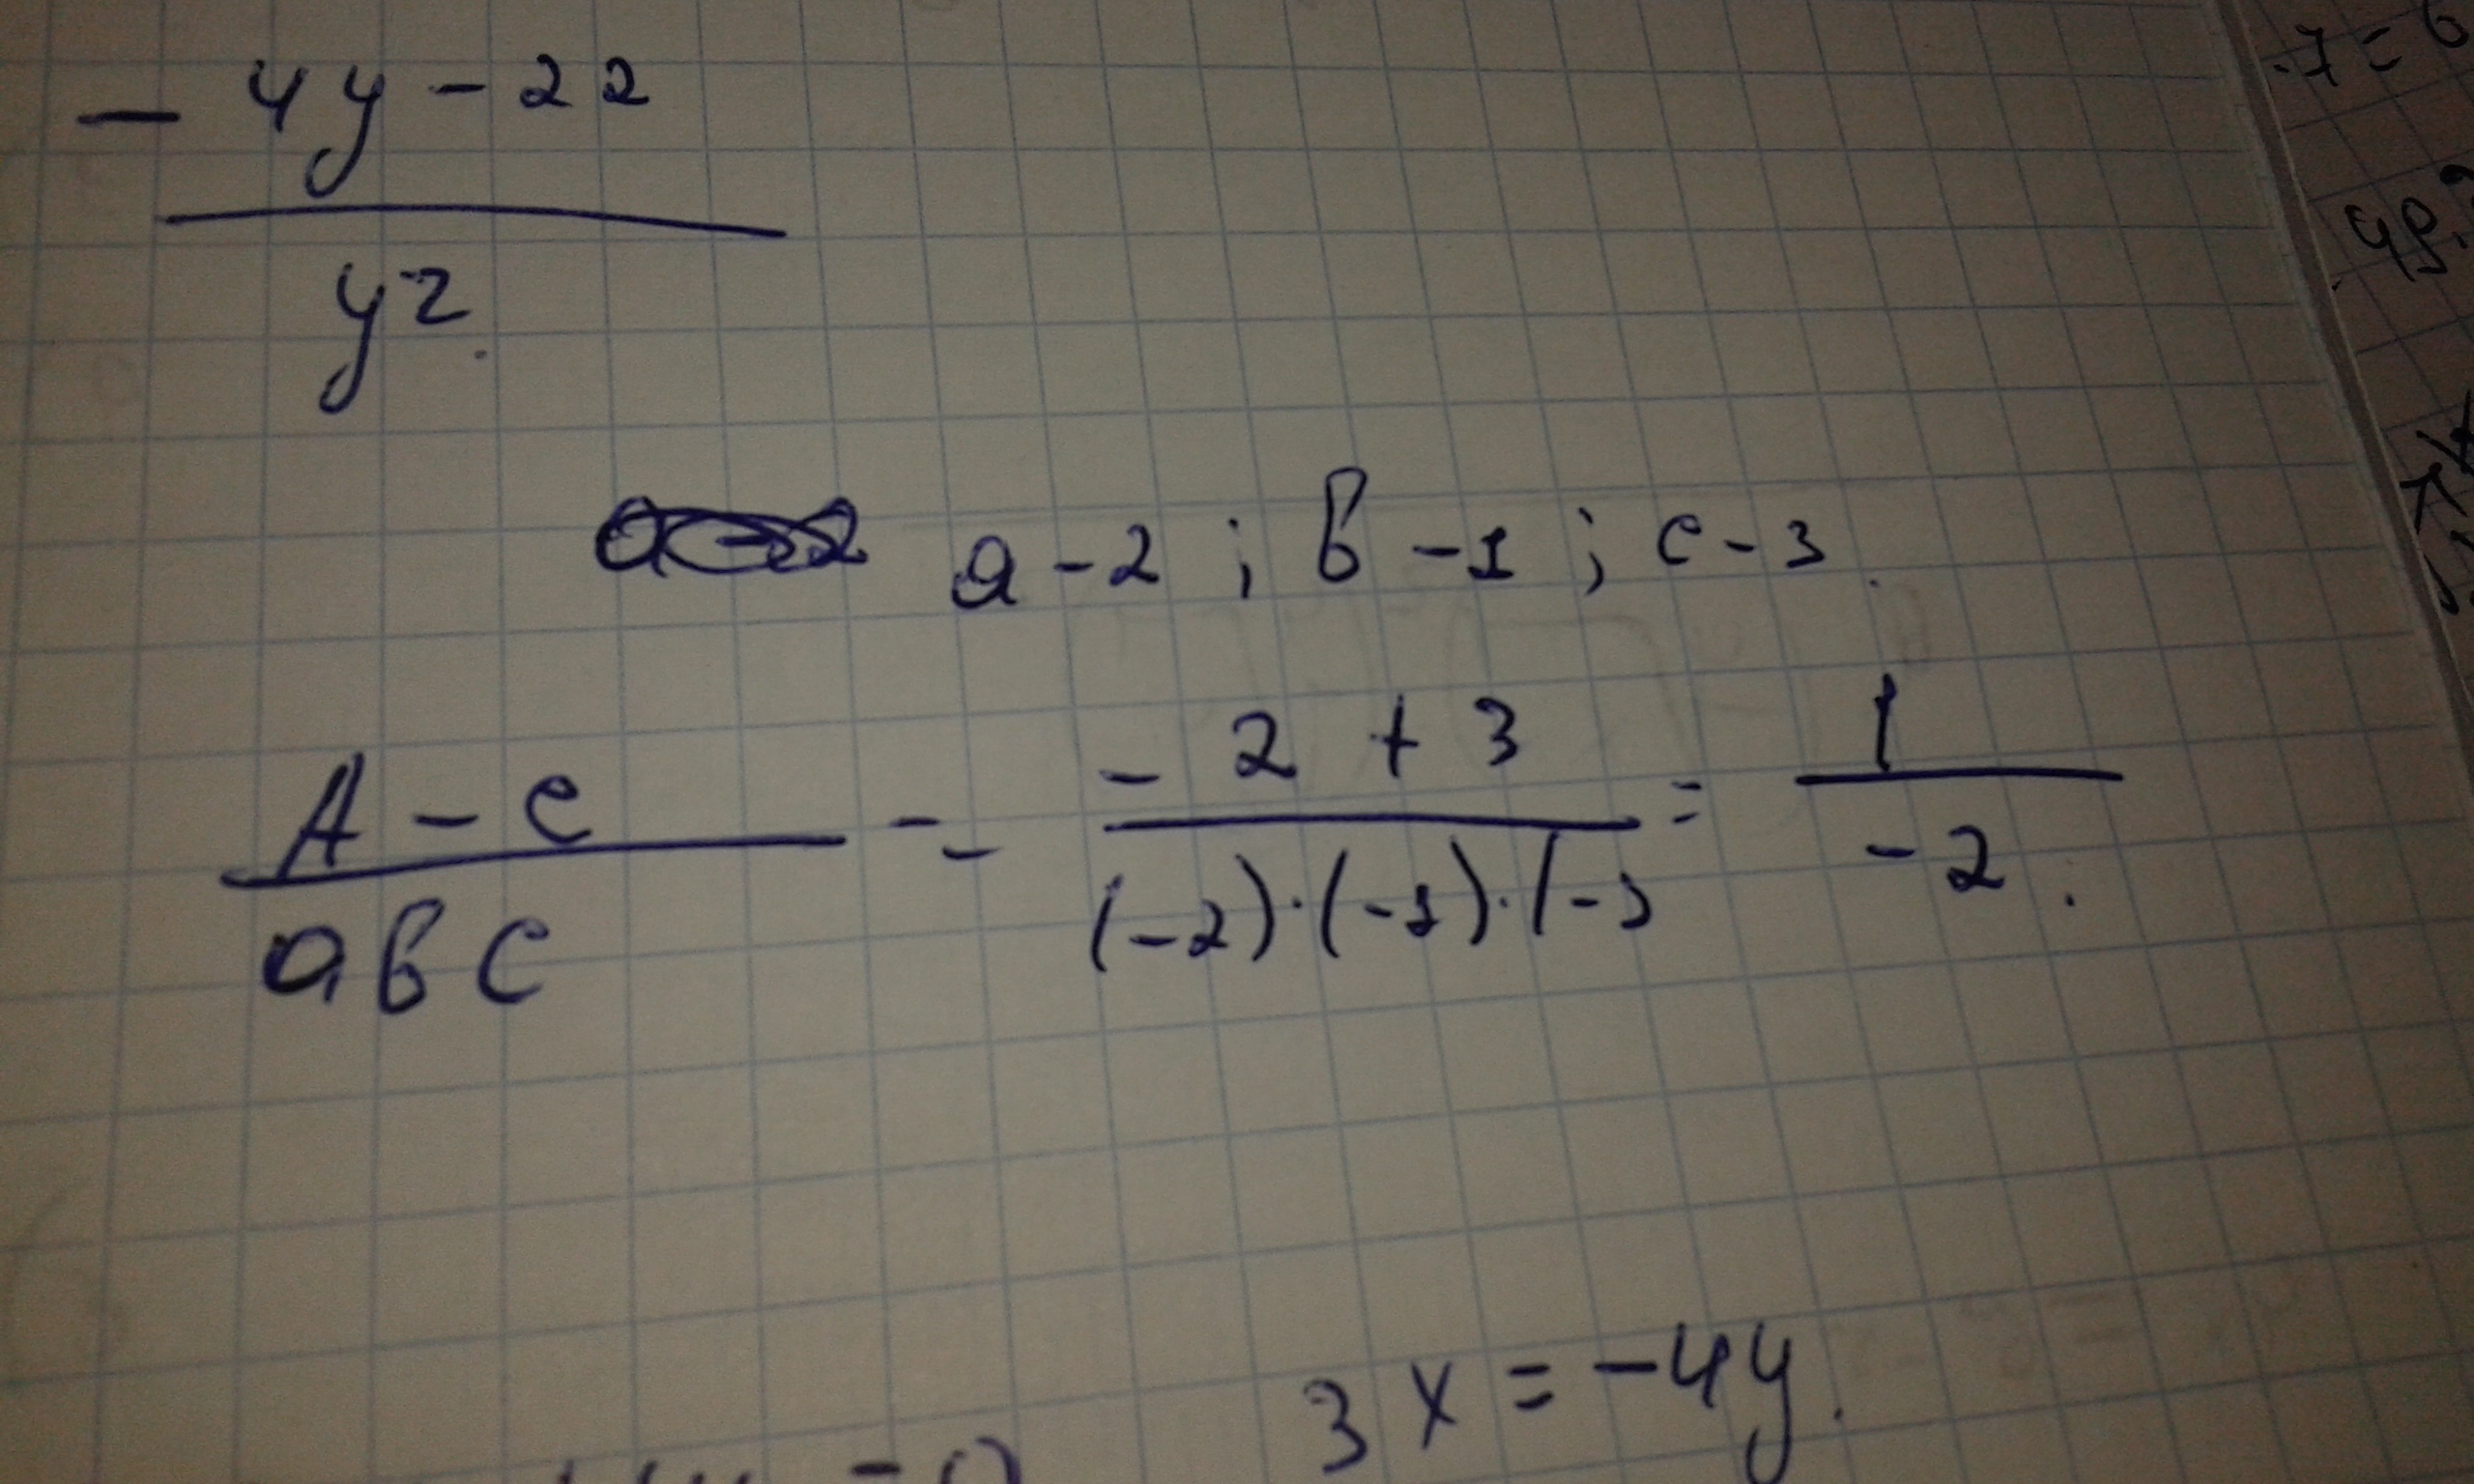 - 4y - 22
yz
a - 2 ; b - 1 ; c - 3.
A - c / abc = - 2 + 3 / (-2)·(-1)·(-3 = 1 / -2.
3x = -4y.
-7 =